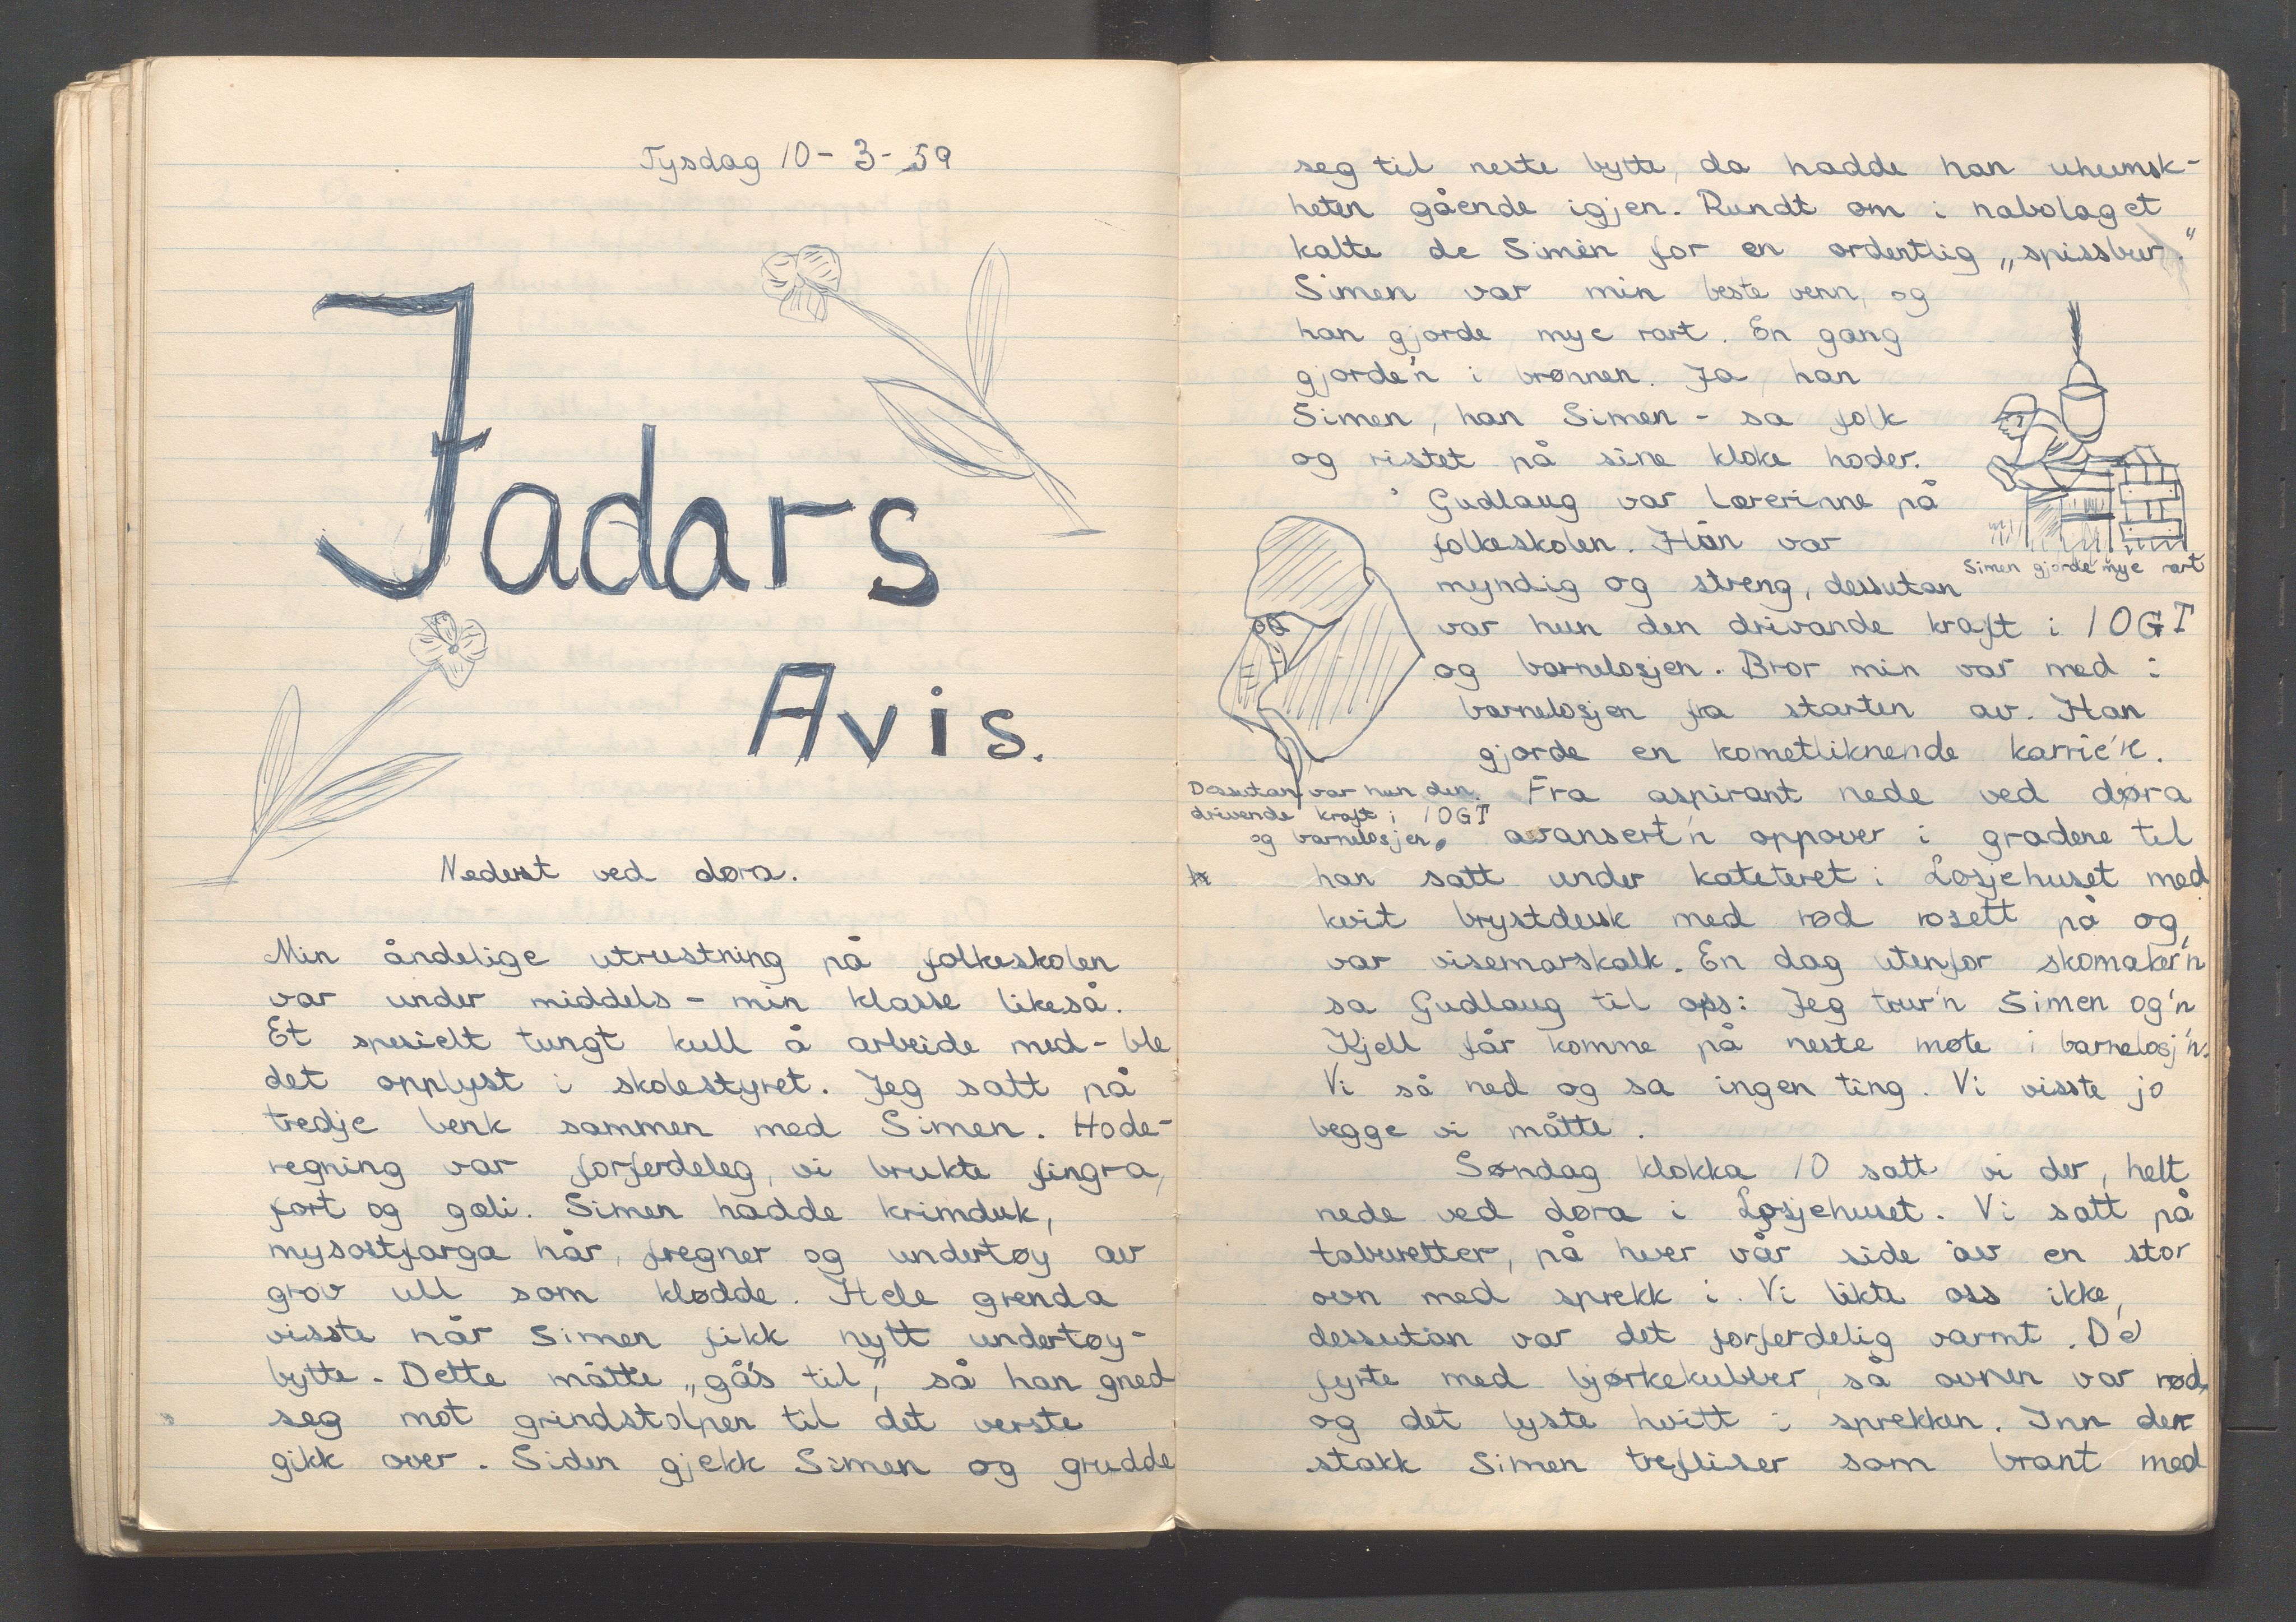 Tysdag 10-3-59
Jadars
Avis.
Nederst ved døra.
Min åndelige utrustning på folkeskolen
var under middels - min klasse likeså.
Et spesielt tungt kull å arbeide med - ble
det opplyst i skolestyret. Jeg satt på
tredje benk sammen med Simen. Hode-
regning var forferdeleg, vi brukte fingra,
fort og gæli. Simen hadde krimduk,
mysostfarga hår, fregner og undertøy av
grov ull som klødde. Hele grenda
visste når Simen fikk nytt undertøy-
bytte. Dette måtte „gå's til," så han gned
seg mot grindstolpen til det verste
gikk over. Siden gjekk Simen og grudde
seg til neste bytte, da hadde han uhumsk-
heten gående igjen. Rundt om i nabolaget
kalte de Simen for en ordentlig „spissbur."
Simen var min beste venn, og
han gjorde mye rart. En gang
gjorde'n i brønnen. Ja han
Simen, han Simen - sa folk
og ristet på sine kloke hoder.
Simen gjorde mye rart
Gudlaug var Lærerinne på
folkeskolen. Hån var
myndig og streng, dessutan
var hun den drivande kraft i IOGT
og barnelosjen. Bror min var med i
barnelosjen fra starten av. Han
gjorde en kometliknende karriére.
Dessutan var hun den
drivende kraft i IOGT
og barnelosjen.
Fra aspirant nede ved døra
avansert'n oppover i gradene til
han satt under kateteret i Losjehuset med
kvit brystdusk med rød rosett på og
var visemarskalk. En dag utenfor skomaker'n
sa Gudlaug til oss: Jeg trur'n Simen og'n
Kjell får komme på neste møte i barnelosj'n.
Vi så ned og sa ingen ting. Vi visste jo
begge vi måtte.
Søndag klokka 10 satt vi der, helt
nede ved døra i Losjehuset. Vi satt på
taburetter, på hver vår side av en stor
ovn med sprekk i. Vi likte oss ikke,
dessutan var det forferdelig varmt. De
fyrte med bjørkekubber, så ovnen var rød,
og det lyste hvitt i sprekken. Inn der
stakk Simen trefliser som brant med